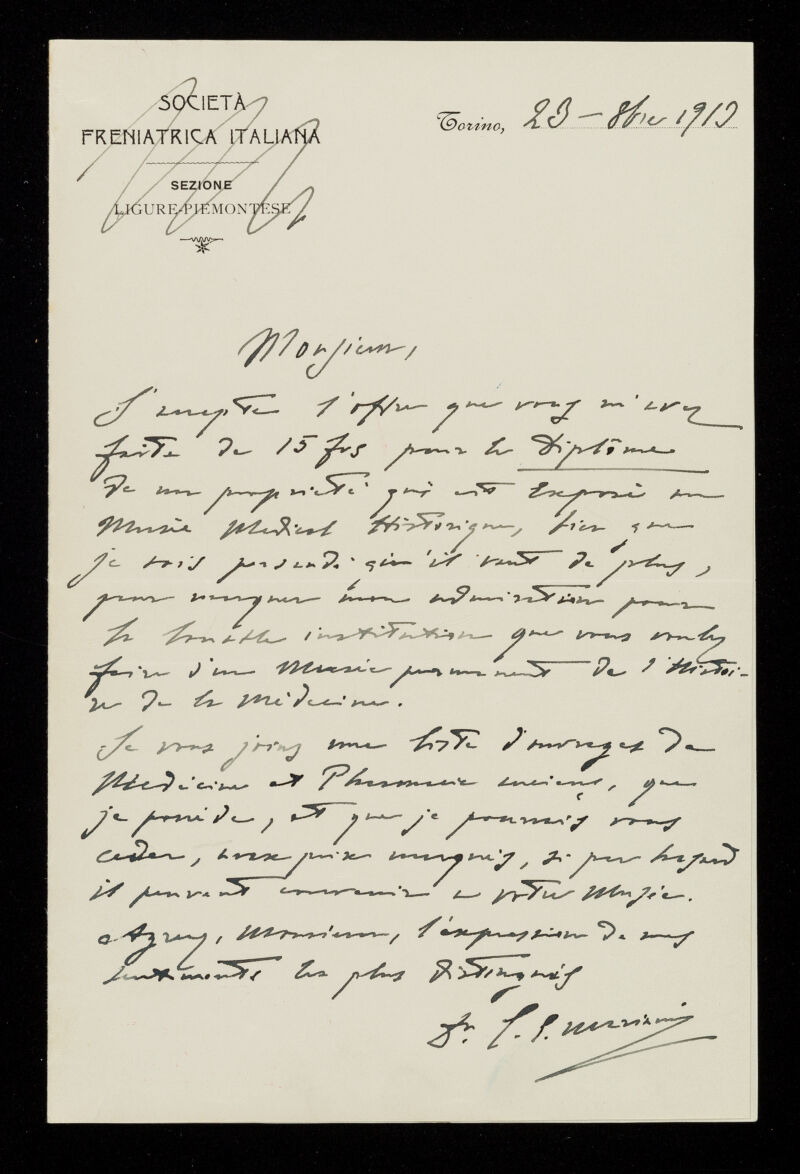 SOCIETÀ
FRENIATRICA ITALIANA
SEZIONE
LIGURE-PIEMONTESE
Torino, 23 – 8bre 1913
Monsieur,
J'accepte l'offre que vous m'avez
faite de 15 frs pour le Diplôme
de ma propriété qui est exposé au
Musée Medical Historique, bien que
je sois persuadé qu'il vaut de plus,
pour marquer mon admiration pour
la louable institution que vous voulez
faire d'un Musée permanent de l'Histoi-
re de la Médecine.
Je vous joins une liste d'ouvrages de
Médécine et Pharmacie anciens, que
je possède, et que je pourrais vous
ceder, aux prix marqués, si par hasard
il peuvent convenir a votre Musée.
Agreez, Monsieur, l'expression de mes
sentiments les plus distingués
Dr. C. E. Mariani